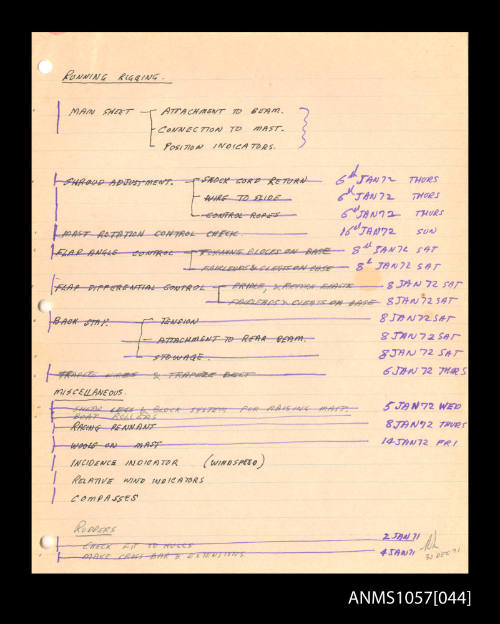 RUNNING RIGGING.
MAIN SHEET - ATTACHMENT TO BEAM.
- CONNECTION TO MAST.
POSITION INDICATORS.
SHROUD ADJUSTMENT. - SHOCK CORD RETURN 6th JAN 72 THURS
WIRE TO SLIDE 6th JAN 72 THURS
CONTROL ROPES 6th JAN 72 THURS
MAST ROTATION CONTROL CHECK. 16th JAN 72 SUN
FLAP ANGLE CONTROL - TURNING BLOCKS ON BASE 8th JAN 72 SAT
FAIRLEADS & CLEATS ON BASE 8th JAN 72 SAT
FLAP DIFFERENTIAL CONTROL - & ELASTIC 8 JAN 72 SAT
FAIRLEADS & CLEATS ON BASE 8 JAN 72 SAT
BACK STAY. - TENSION 8 JAN 72 SAT
- ATTACHMENT TO REAR BEAM. 8 JAN 72 SAT
STOWAGE. 8 JAN 72 SAT
TRAPEZE WIRES & TRAPEZE BELT 6 JAN 72 THURS
MISCELLANEOUS.
SHEAR LEGS & BLOCK SYSTEM FOR RAISING MAST. 5 JAN 72 WED
BOAT ROLLERS
RACING PENNANT 8 JAN 72 THURS
WOOLS ON MAST 14 JAN 72 FRI
INCIDENCE INDICATOR (WINDSPEED)
RELATIVE WIND INDICATORS
COMPASSES
RUDDERS
CHECK FIT TO HULLS 2 JAN 71
MAKE CROSS BAR & EXTENSIONS 4 JAN 71
31 DEC 71
ANMS1057[044]